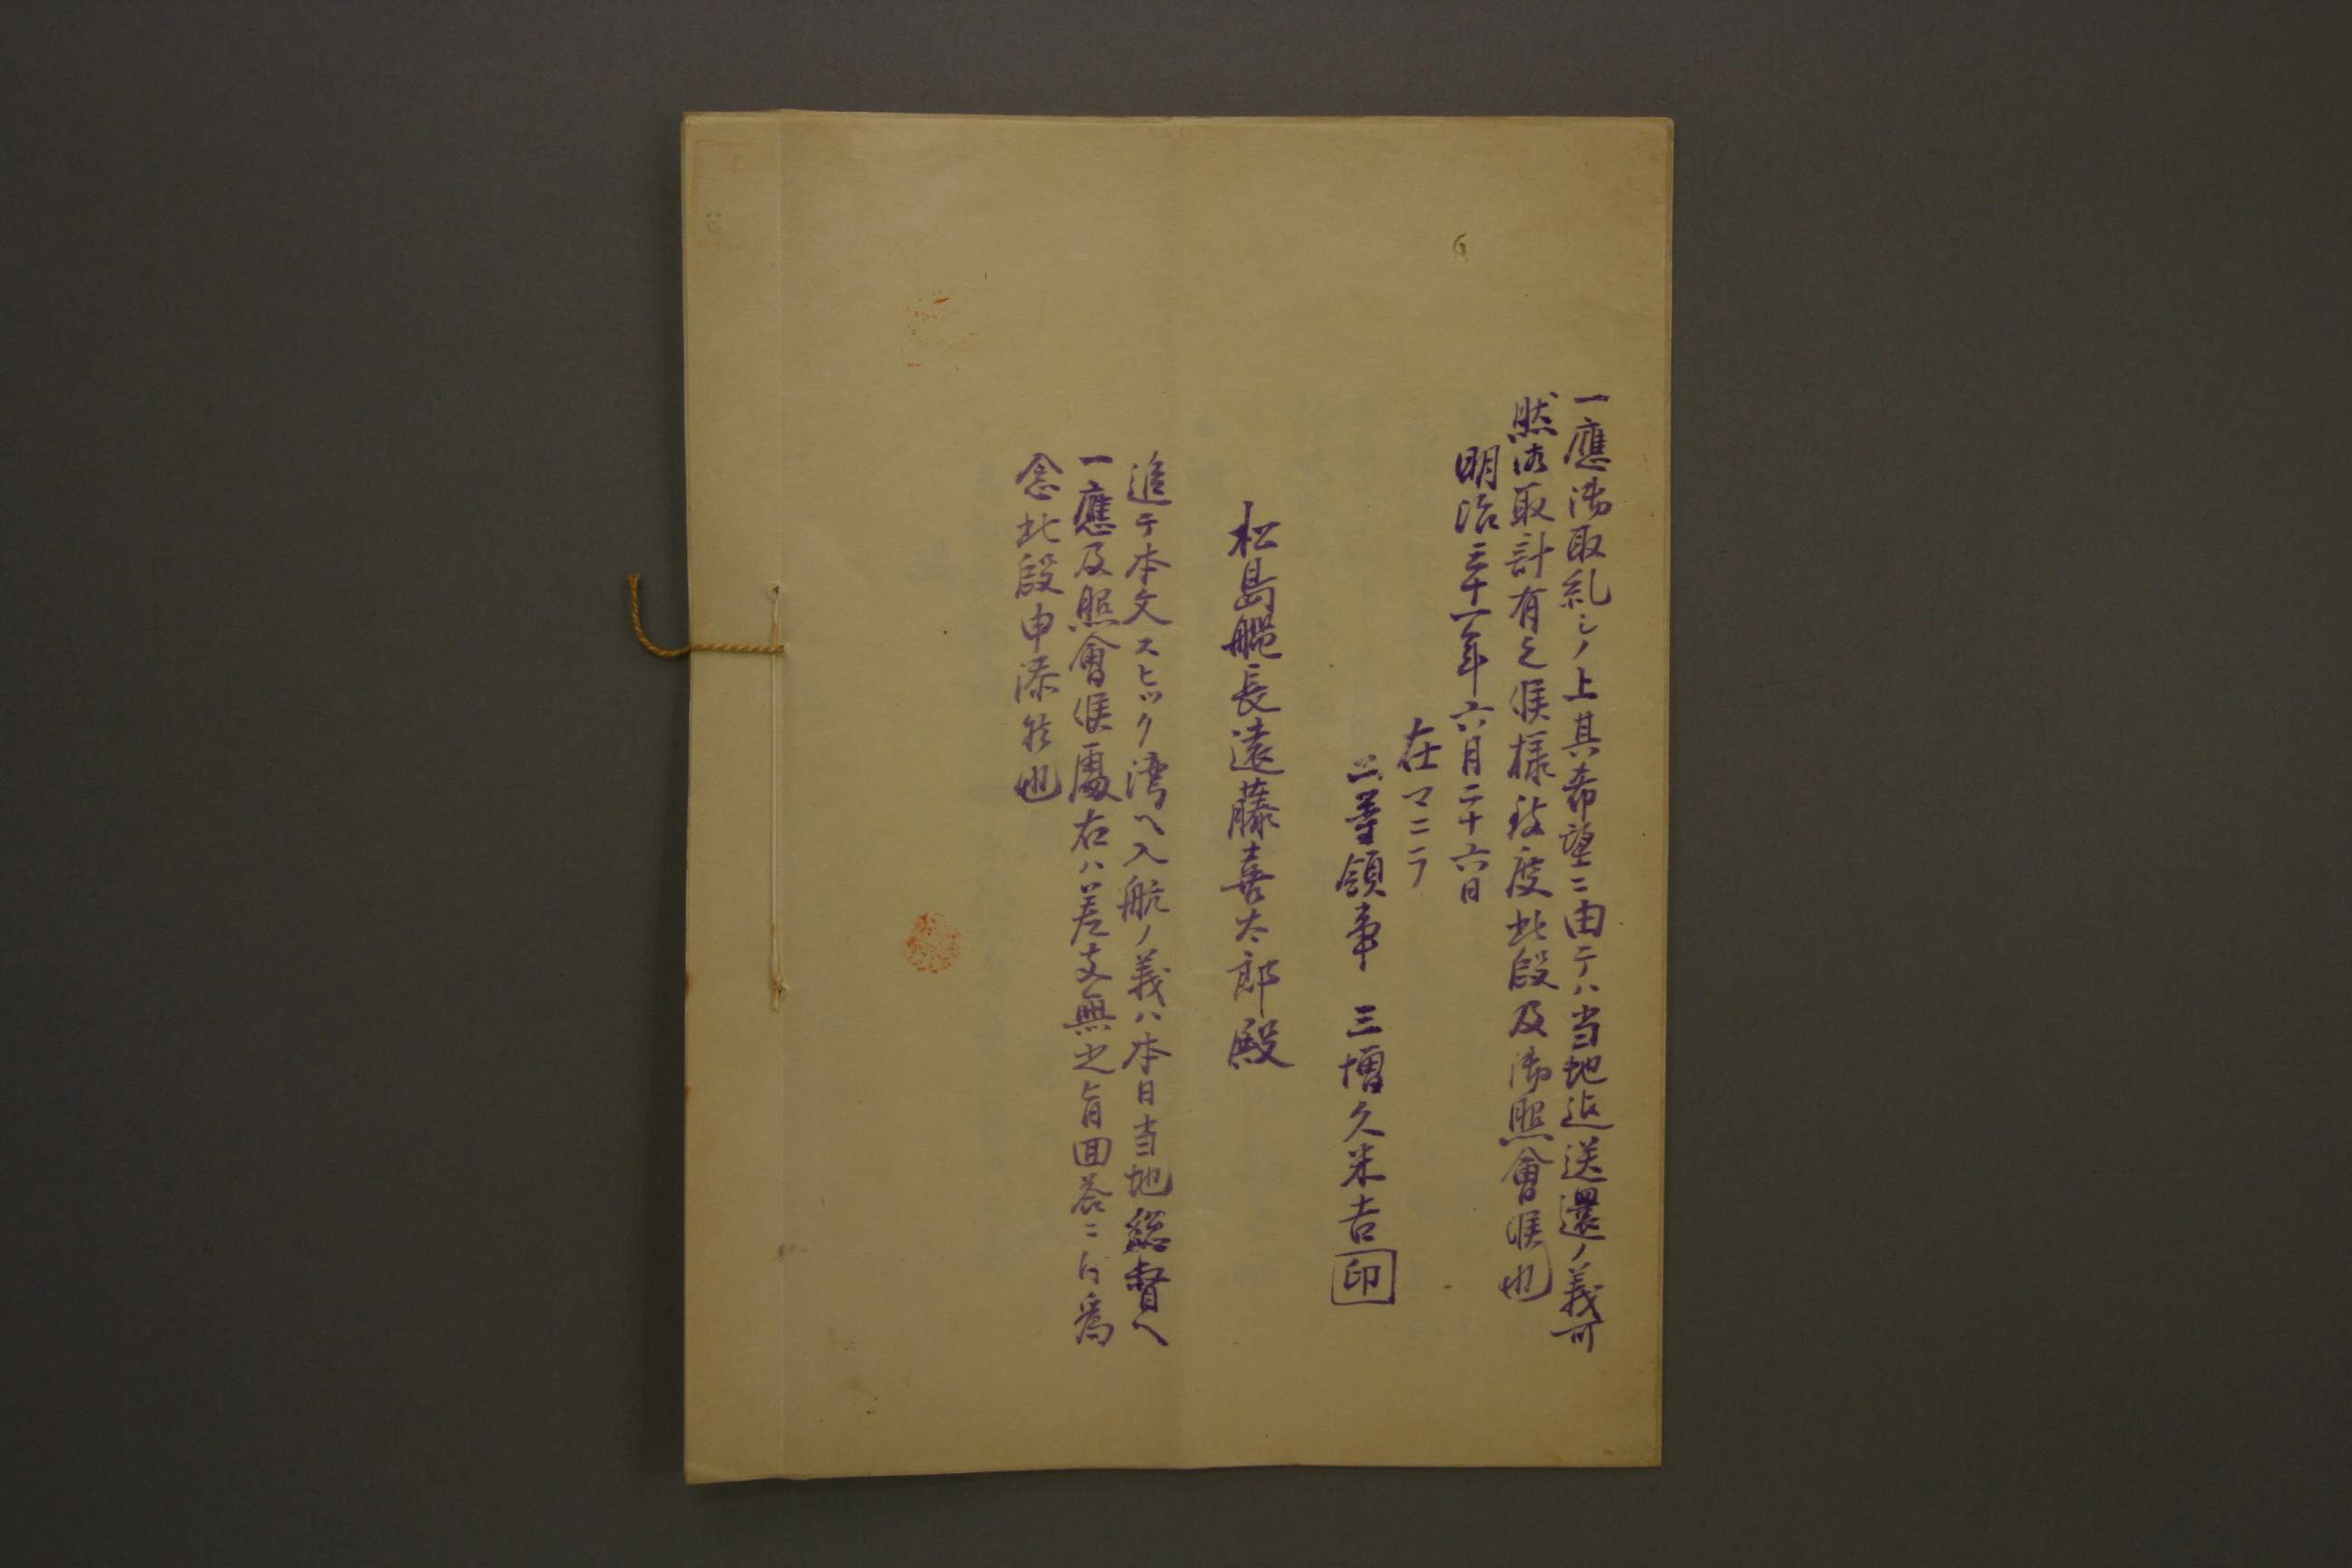 一應御取糺シノ上其希望ニ由テハ当地迄送還ノ義可
然御取計有之候様致度此段及御照會候也
明治三十一年六月二十六日
在マニラ
二等領事 三増久米吉 印
松島艦長遠藤喜太郎殿
追テ本文スヒック湾ヘ入航ノ義ハ本日当地総督ヘ
一應及照會候處右ハ差支無之旨回答ニ付為
念此段申添候也